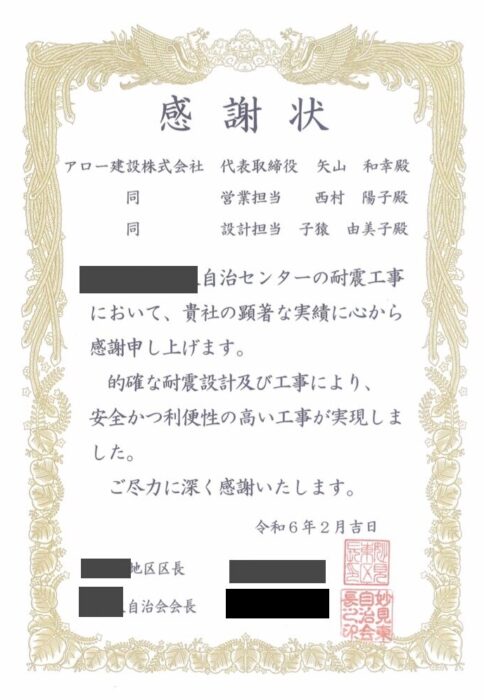 感謝状
アロー建設株式会社 代表取締役 矢山 和幸殿
同 営業担当 西村 陽子殿
同 設計担当 子猿 由美子殿
自治センターの耐震工事
において、貴社の顕著な実績に心から
感謝申し上げます。
的確な耐震設計及び工事により、
安全かつ利便性の高い工事が実現しま
した。
ご尽力に深く感謝いたします。
令和6年2月吉日
地区区長
自治会会長
妙見東
自治会
長之印